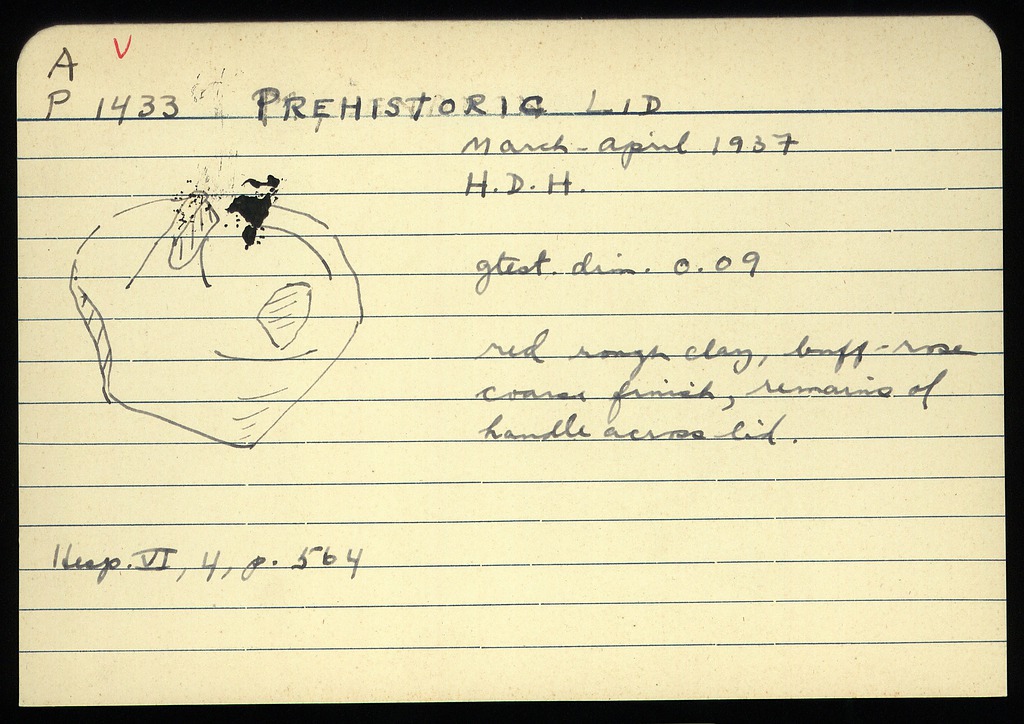 A V
P 1433 PREHISTORIC LID
March - April 1937
H.D.H.
gtest. dim. 0.09
red rough clay, buff-rose
coarse finish, remains of
handle across lid.
Hesp. VI, 4, p. 564